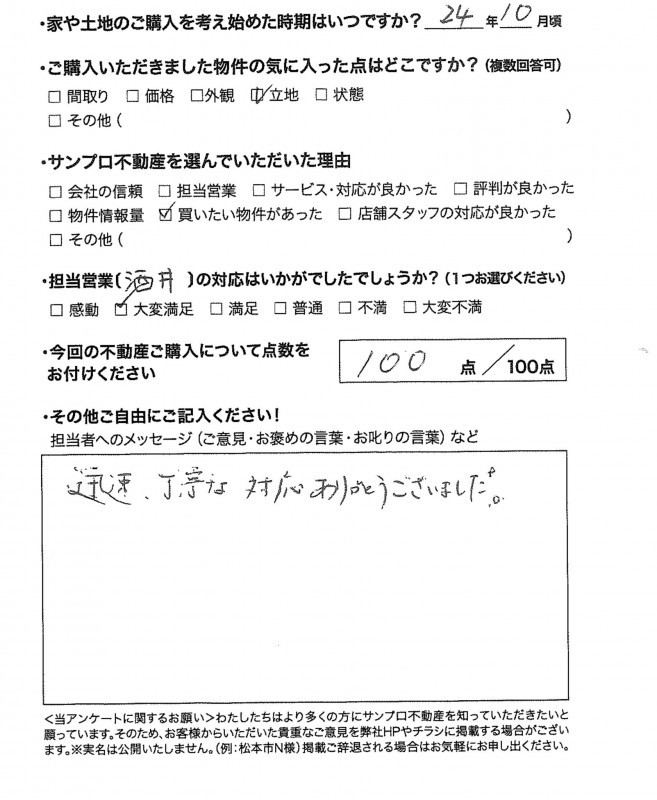 ・家や土地のご購入を考え始めた時期はいつですか? 24 年 10 月頃
・ご購入いただきました物件の気に入った点はどこですか?(複数回答可)
□ 間取り □ 価格 □外観 ☑立地 □ 状態
□ その他 ( )
・サンプロ不動産を選んでいただいた理由
□ 会社の信頼 □ 担当営業 □ サービス・対応が良かった □ 評判が良かった
□ 物件情報量 ☑ 買いたい物件があった □ 店舗スタッフの対応が良かった
□ その他 ( )
・担当営業〔酒井 〕の対応はいかがでしたでしょうか?(1つお選びください)
□ 感動 ☑ 大変満足 □ 満足 □ 普通 □ 不満 □ 大変不満
・今回の不動産ご購入について点数を
お付けください
100 点/100点
・その他ご自由にご記入ください!
担当者へのメッセージ(ご意見・お褒めの言葉・お叱りの言葉)など
迅速、丁寧な 対応 ありがとうございました。
<当アンケートに関するお願い>わたしたちはより多くの方にサンプロ不動産を知っていただきたいと
願っています。そのため、お客様からいただいた貴重なご意見を弊社HPやチラシに掲載する場合がござい
ます。※実名は公開いたしません。(例:松本市N様)掲載ご辞退される場合はお気軽にお申し出ください。